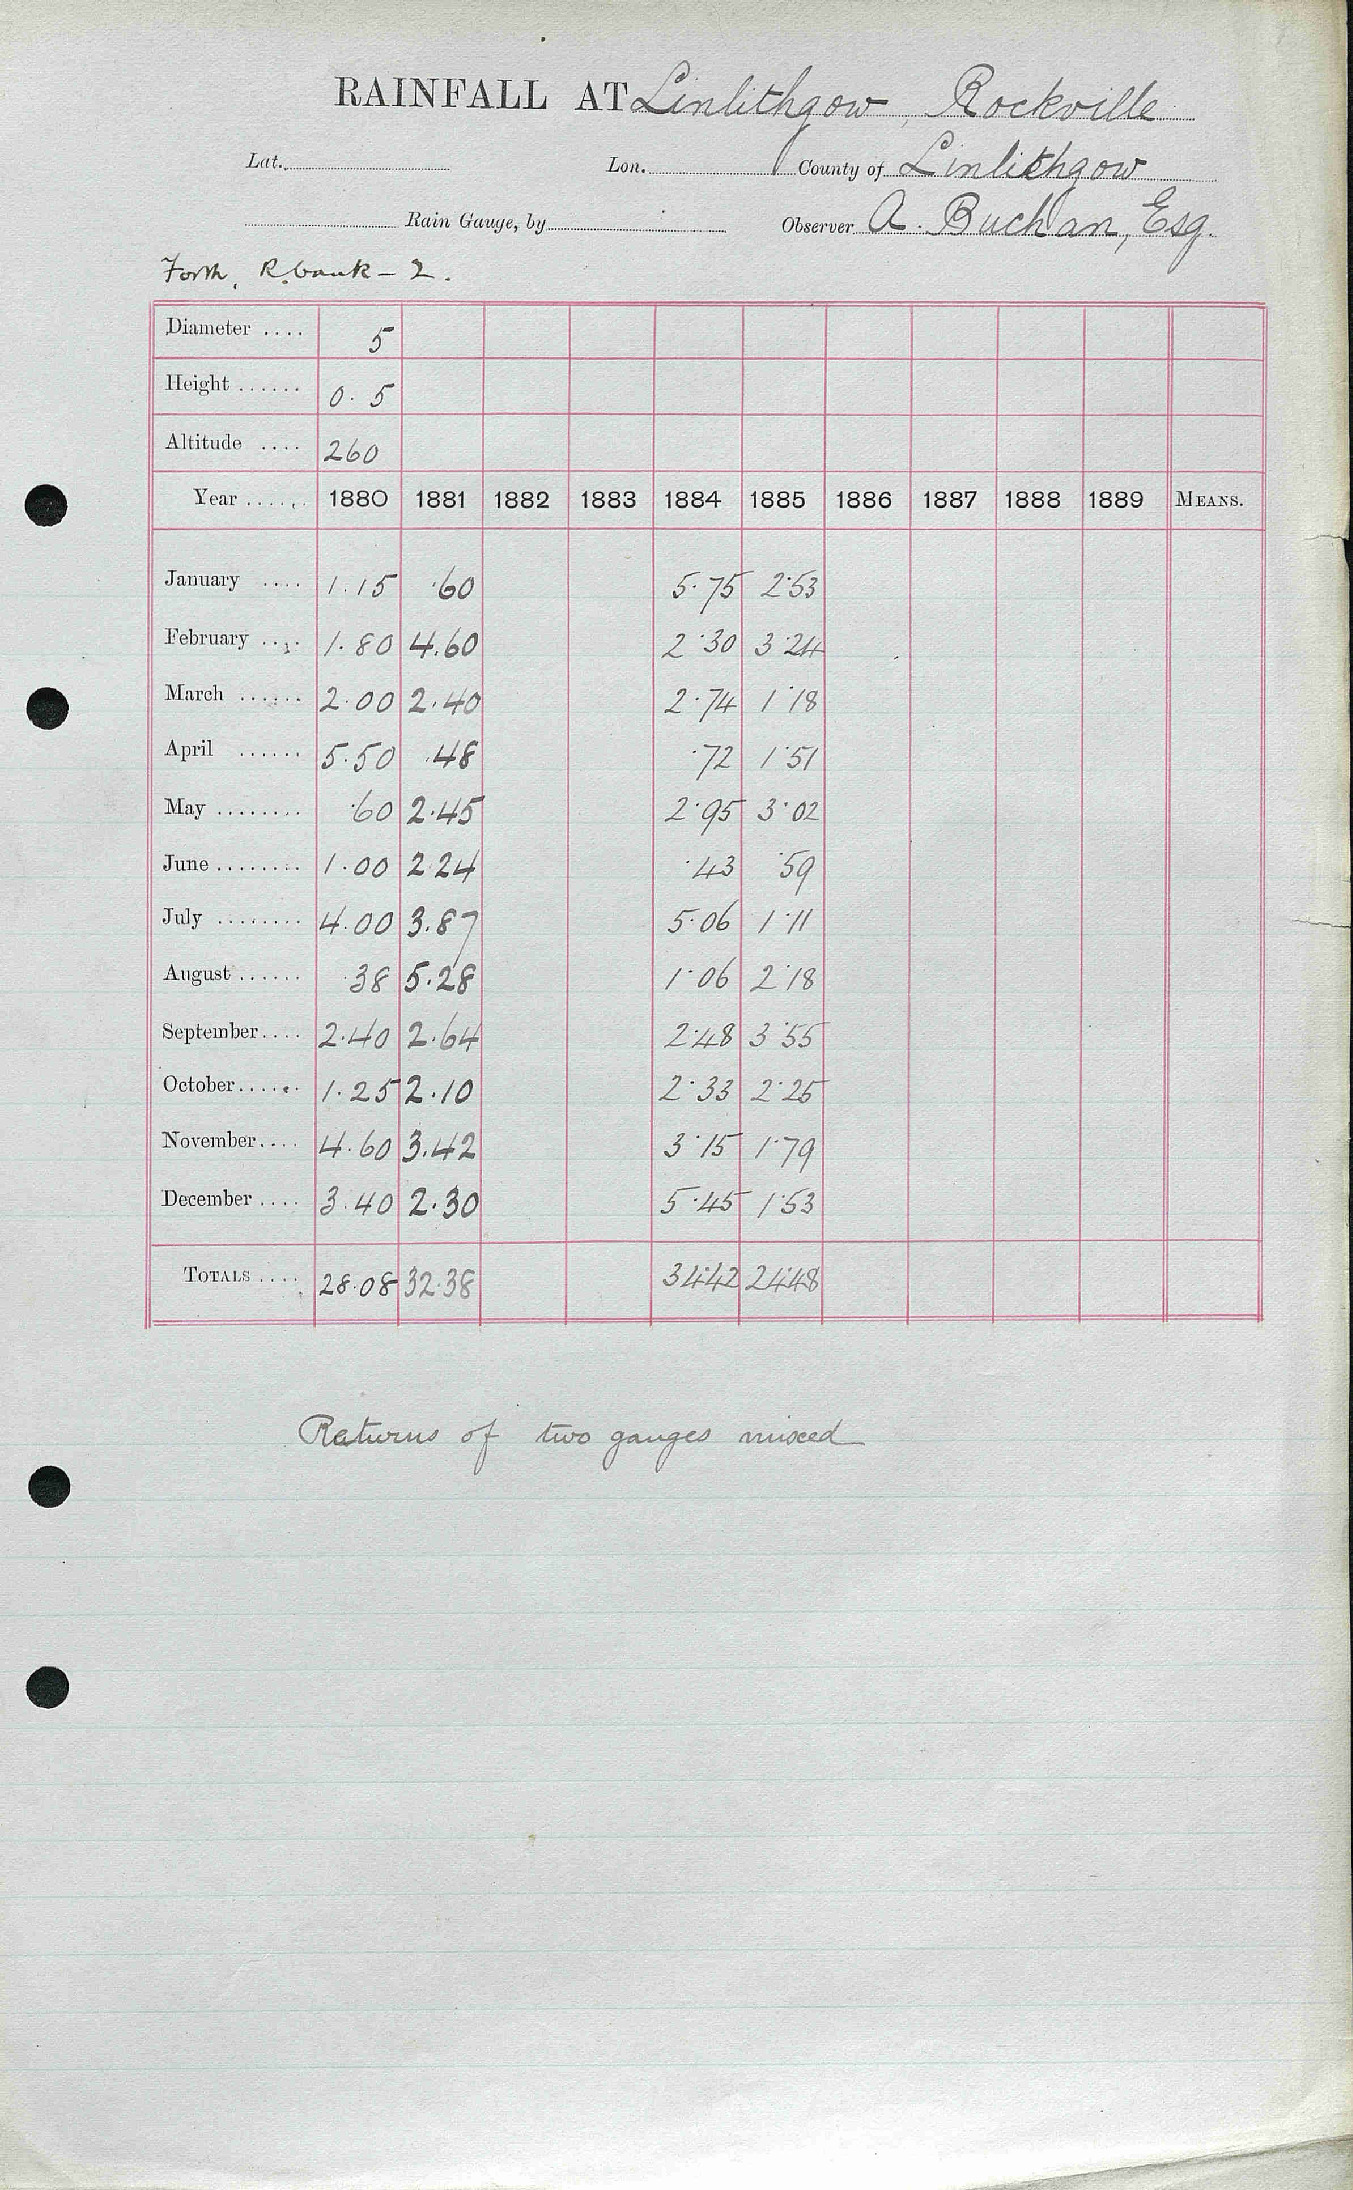 RAINFALL AT Linlithgow, Rockville
Lat. Lon. County of Linlithgow
Rain Gauge, by Observer A. Buchan, Esq.
Forth, R. bank - 2.
Diameter .... 5
Height ...... 0.5
Altitude .... 260
Year ...... 1880 1881 1882 1883 1884 1885 1886 1887 1888 1889 MEANS.
January .... 1.15 .60 5.75 2.53
February .... 1.80 4.60 2.30 3.24
March ...... 2.00 2.40 2.74 1.18
April ...... 5.50 .48 .72 1.51
May ........ .60 2.45 2.95 3.02
June ........ 1.00 2.24 .43 .59
July ........ 4.00 3.87 5.06 1.11
August ...... .38 5.28 1.06 2.18
September .... 2.40 2.64 2.48 3.55
October ...... 1.25 2.10 2.33 2.25
November .... 4.60 3.42 3.15 1.79
December .... 3.40 2.30 5.45 1.53
TOTALS .... 28.08 32.38 34.42 24.48
Returns of two gauges mixed